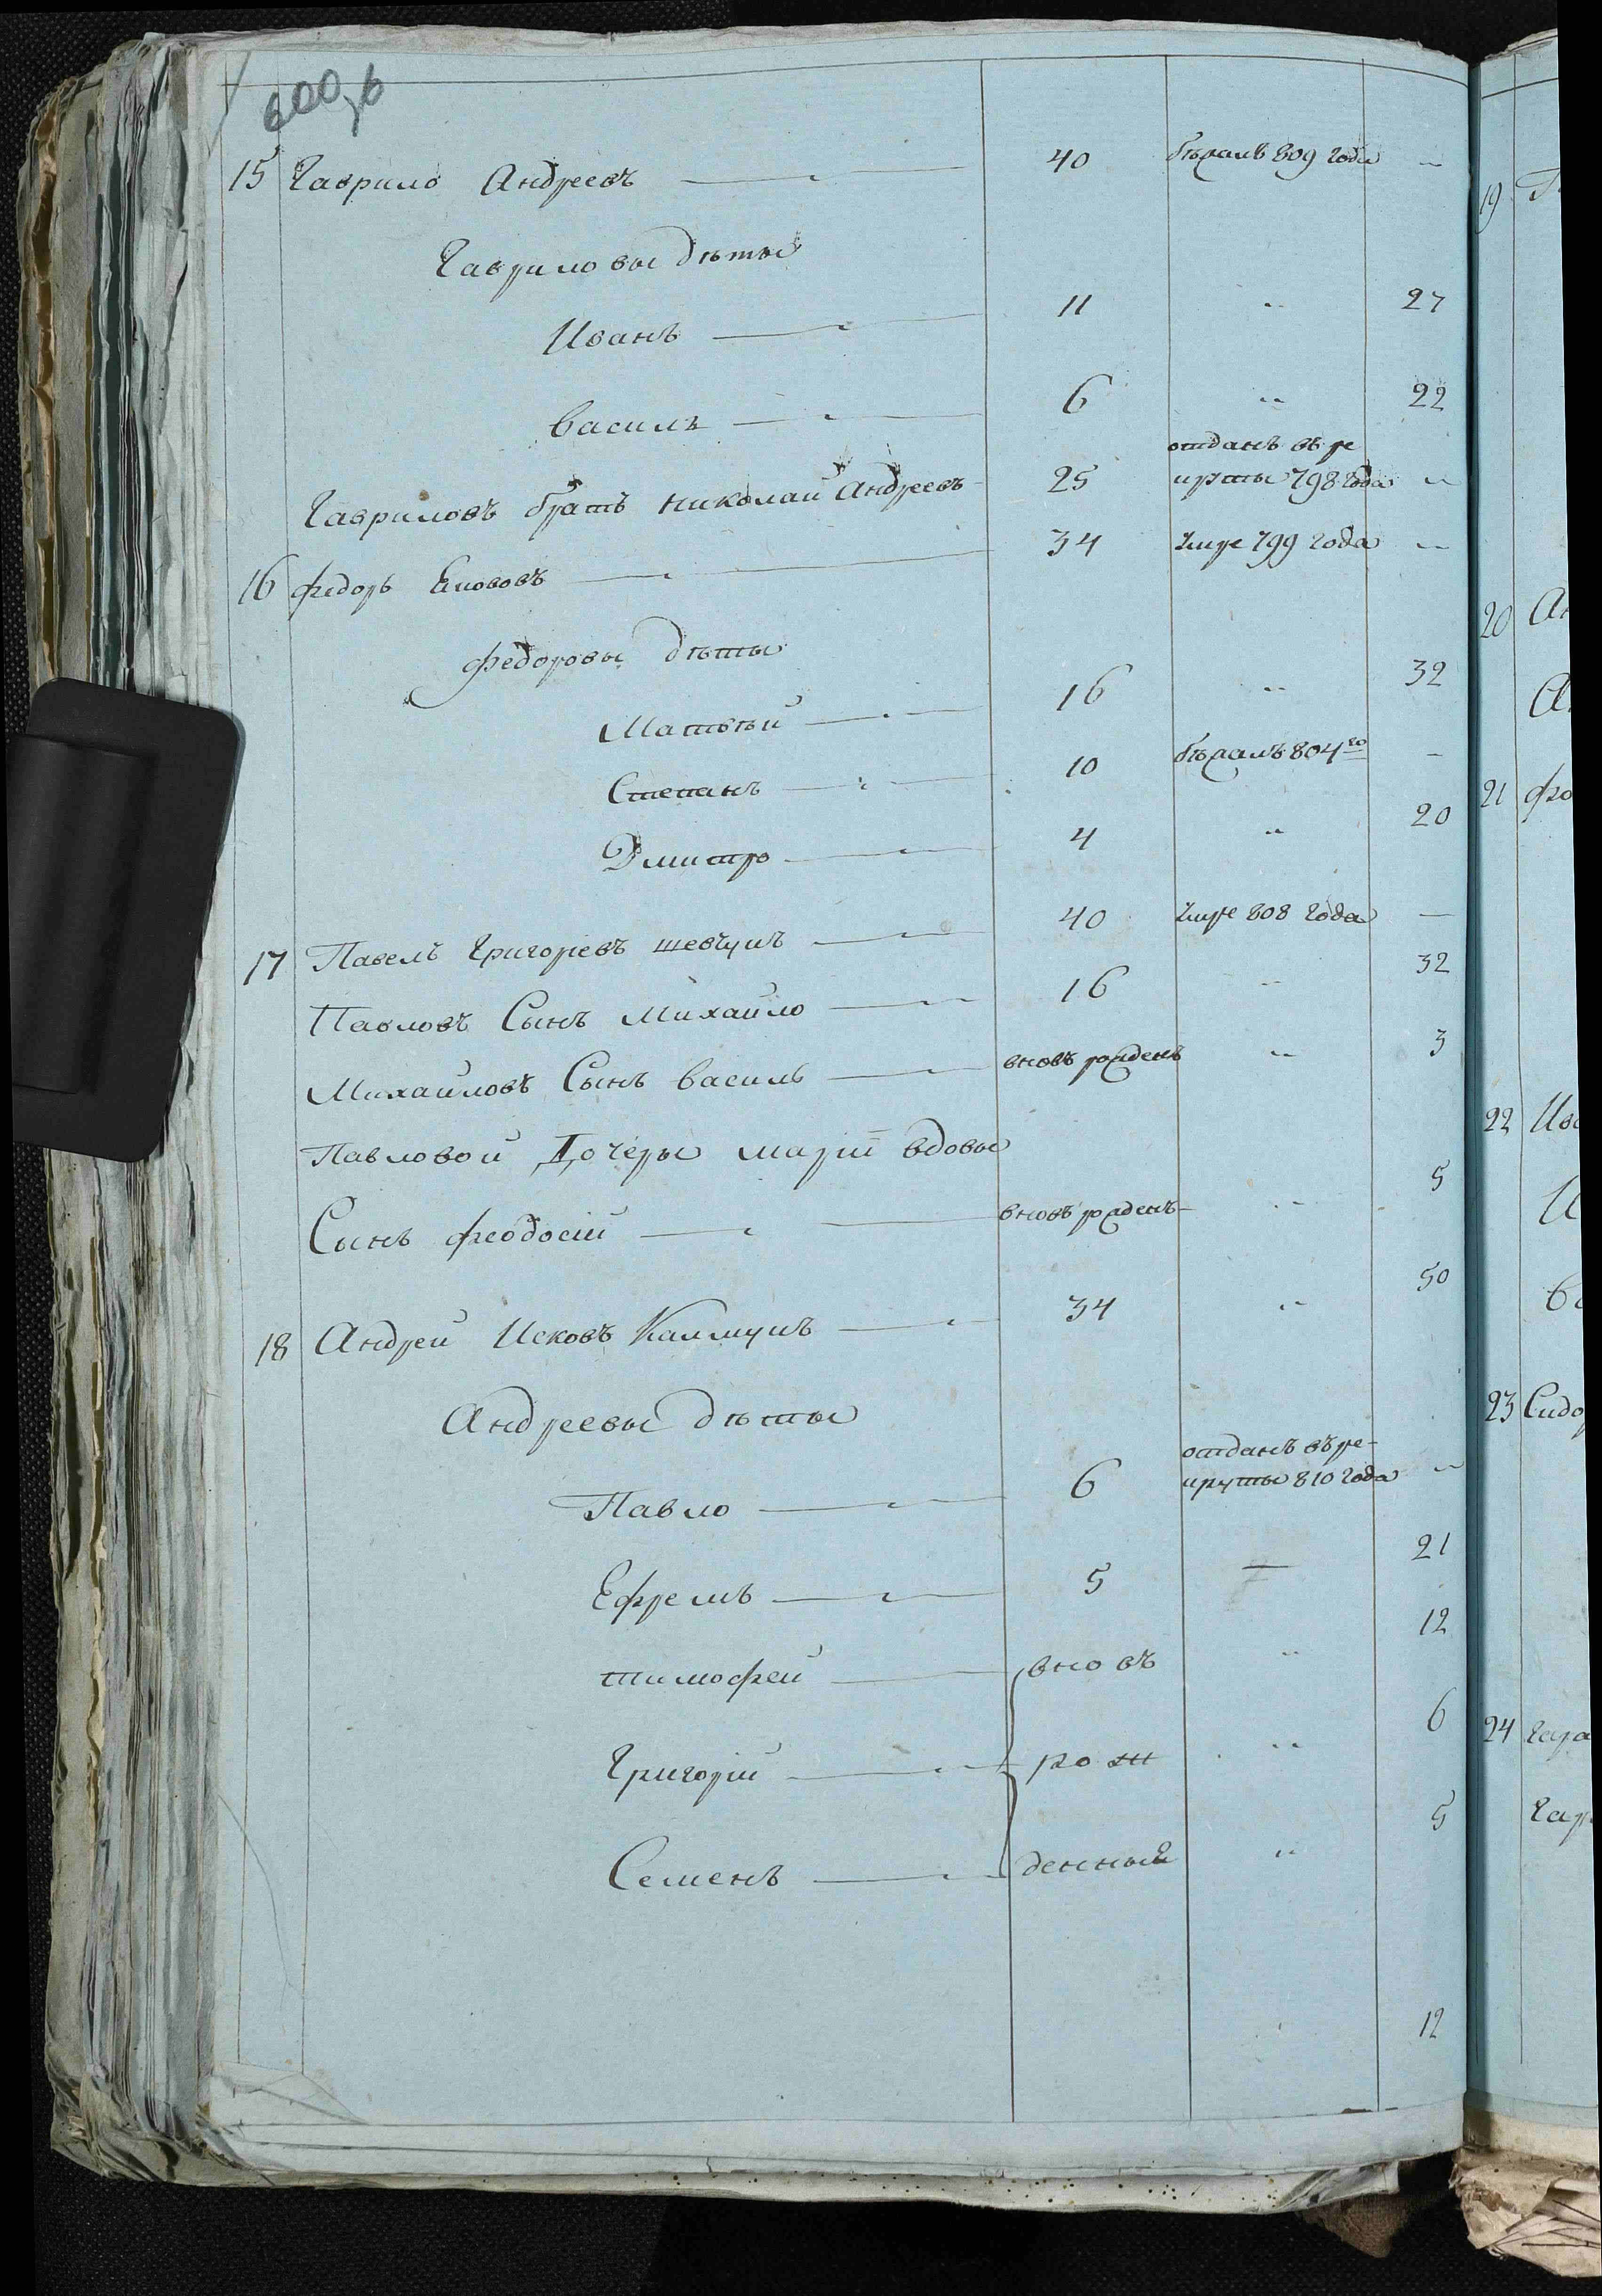 600 об
15 Гаврило Андреевъ 40 бѣжалъ 809 года
Гавриловы дѣты
Иванъ 11 27
Василь 6 22
Гавриловъ братъ Николай Андреевъ 25 отданъ въ ре
круты 798 года
16 Федоръ 34 умре 799 года
Федоровы дѣты
Матвѣй 16 32
Степанъ 10 бѣжалъ 804го
Дмитро 4 20
17 Павелъ Григоріевъ Шевчукъ 40 умре 808 года
Павловъ Сынъ Михайло 16 32
Михайловъ Сынъ Василь вновь рожденъ 3
Павловой Дочеры Маріи вдовы
Сынъ Феодосій вновь рожденъ 5
18 Андрей Исковъ 34 50
Андреевы дѣты
Павло 6 отданъ въ ре-
круты 810 года
Ефремъ 5 — 21
Тимофей вновь 12
Григорій рож 6
Семенъ денные 5
12
19
20
21
22
23 Сидо
24